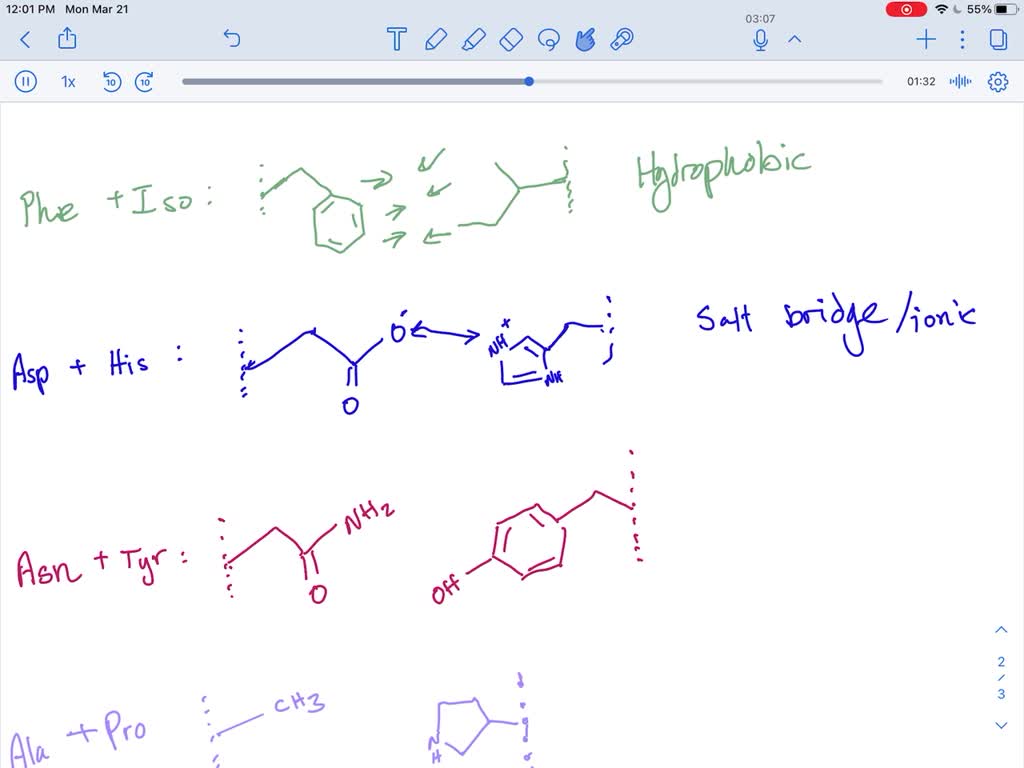 12:01 PM Mon Mar 21
55%
03:07
T
1x
10
10
01:32
Phe + Iso :
Hydrophobic
Asp + His :
O-
O
NH+
NH
Salt bridge/ionic
Asn + Tyr :
NH2
O
OH
Ala + Pro
CH3
N
H
2
/
3